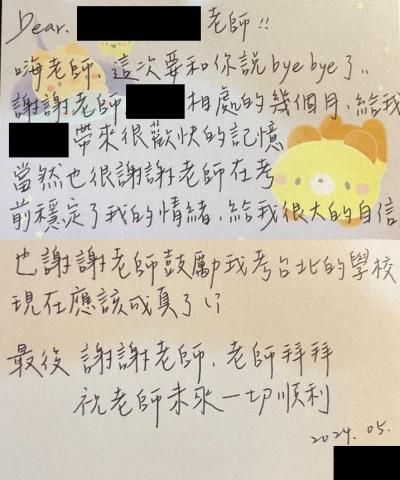 Dear. 老師!!
嗨老師、這次要和你說bye bye了..
謝謝老師 相處的幾個月、給我
帶來很歡快的記憶
當然也很謝謝老師在考
前穩定了我的情緒,給我很大的自信
也謝謝老師鼓勵我考台北的學校
現在應該成真了
最後 謝謝老師,老師拜拜
祝老師未來一切順利
2024. 05.